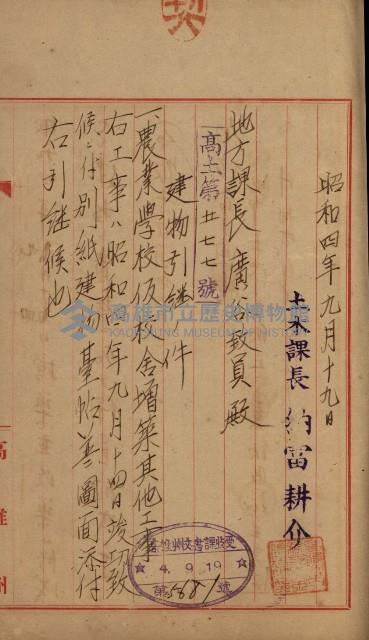 契
昭和四年九月十九日
土木課長 納富耕介
地方課長 廣 致員殿
高土第廿七七號
建物引継ノ件
一、農業學校仮校舎増築其他工事
右工事ハ昭和四年九月十四日竣功致
候ニ付別紙建物臺帖並ニ圖面添付
右引継候也
高雄州
4.9.19
第5681號
高雄市立歷史博物館
KAOHSIUNG MUSEUM OF HISTORY